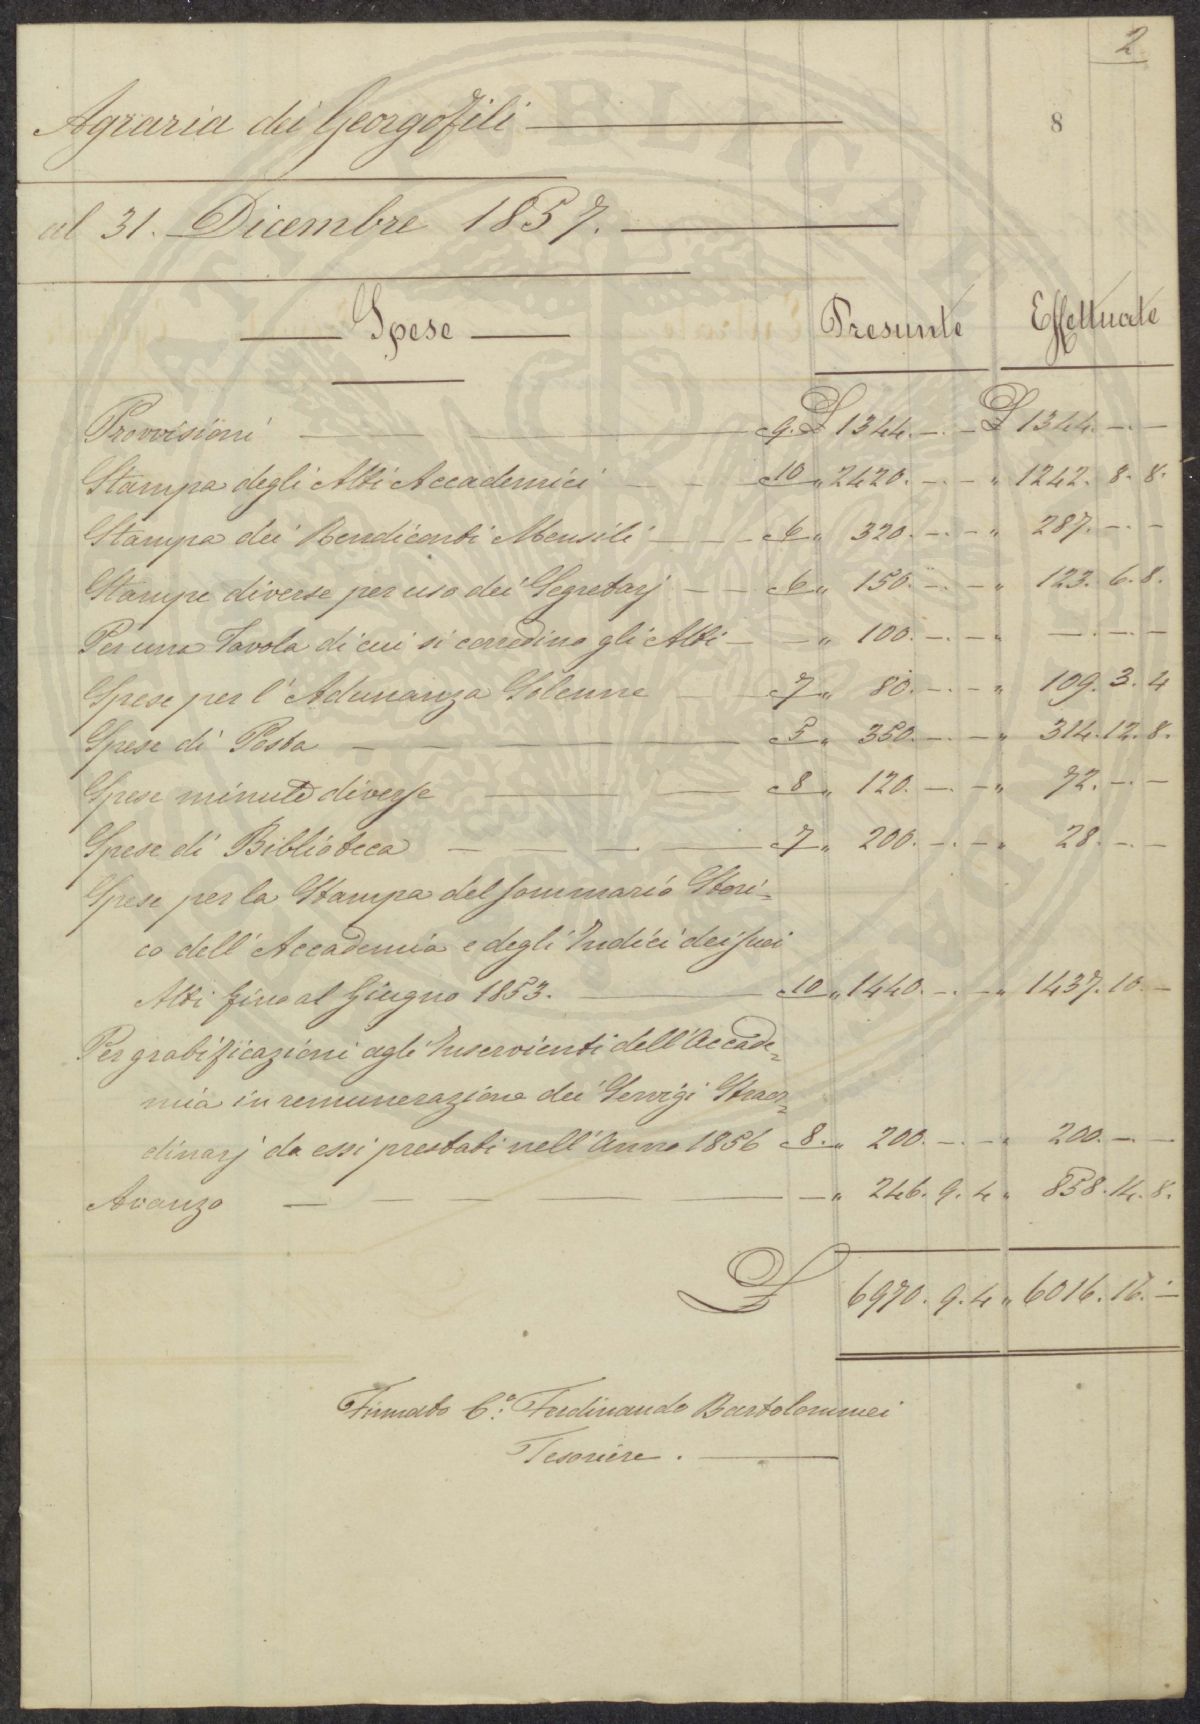 2
8
Agraria dei Georgofili
al 31. Dicembre 1857.
Spese Presunte Effettuate
Provvisioni c. 9. £ 1344. -. - £ 1344. -. -
Stampa degli Atti Accademici c. 10 " 2420. -. - " 1242. 8. 8.
Stampa dei Rendiconti Mensili c. 6 " 320. -. - " 287. -. -
Stampe diverse per uso dei Segretarj c. 6 " 150. -. - " 123. 6. 8.
Per una Tavola di cui si corredino gli Atti - " 100. -. - " -. -. -
Spese per l'Adunanza Solenne c. 7 " 80. -. - " 109. 3. 4
Spese di Posta c. 5 " 350. -. - " 314. 12. 8.
Spese minute diverse c. 8 " 120. -. - " 72. -. -
Spese di Biblioteca c. 7 " 200. -. - " 28. -. -
Spese per la Stampa del Sommario Stori=
co dell'Accademia e degli Indici dei suoi
Atti fino al Giugno 1853. c. 10 " 1440. -. - " 1437. 10. -
Per gratificazioni agli Inservienti dell'Accade=
mia in remunerazione dei Servigi Straor=
dinarj da essi prestati nell'Anno 1856 c. 8. " 200. -. - " 200. -. -
Avanzo - " 246. 9. 4 " 858. 14. 8.
£ 6970. 9. 4 " 6016. 16. -
Firmato C.e Ferdinando Bartolommei
Tesoriere.